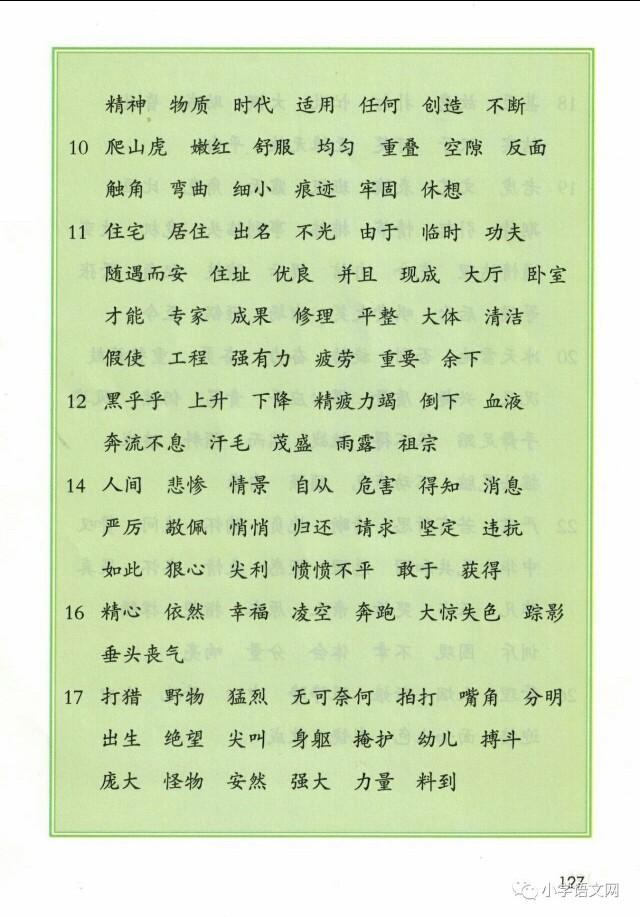 精神 物质 时代 适用 任何 创造 不断
10 爬山虎 嫩红 舒服 均匀 重叠 空隙 反面
触角 弯曲 细小 痕迹 牢固 休想
11 住宅 居住 出名 不光 由于 临时 功夫
随遇而安 住址 优良 并且 现成 大厅 卧室
才能 专家 成果 修理 平整 大体 清洁
假使 工程 强有力 疲劳 重要 余下
12 黑乎乎 上升 下降 精疲力竭 倒下 血液
奔流不息 汗毛 茂盛 雨露 祖宗
14 人间 悲惨 情景 自从 危害 得知 消息
严厉 敬佩 悄悄 归还 请求 坚定 违抗
如此 狠心 尖利 愤愤不平 敢于 获得
16 精心 依然 幸福 凌空 奔跑 大惊失色 踪影
垂头丧气
17 打猎 野物 猛烈 无可奈何 拍打 嘴角 分明
出生 绝望 尖叫 身躯 掩护 幼儿 搏斗
庞大 怪物 安然 强大 力量 料到
127
小学语文网